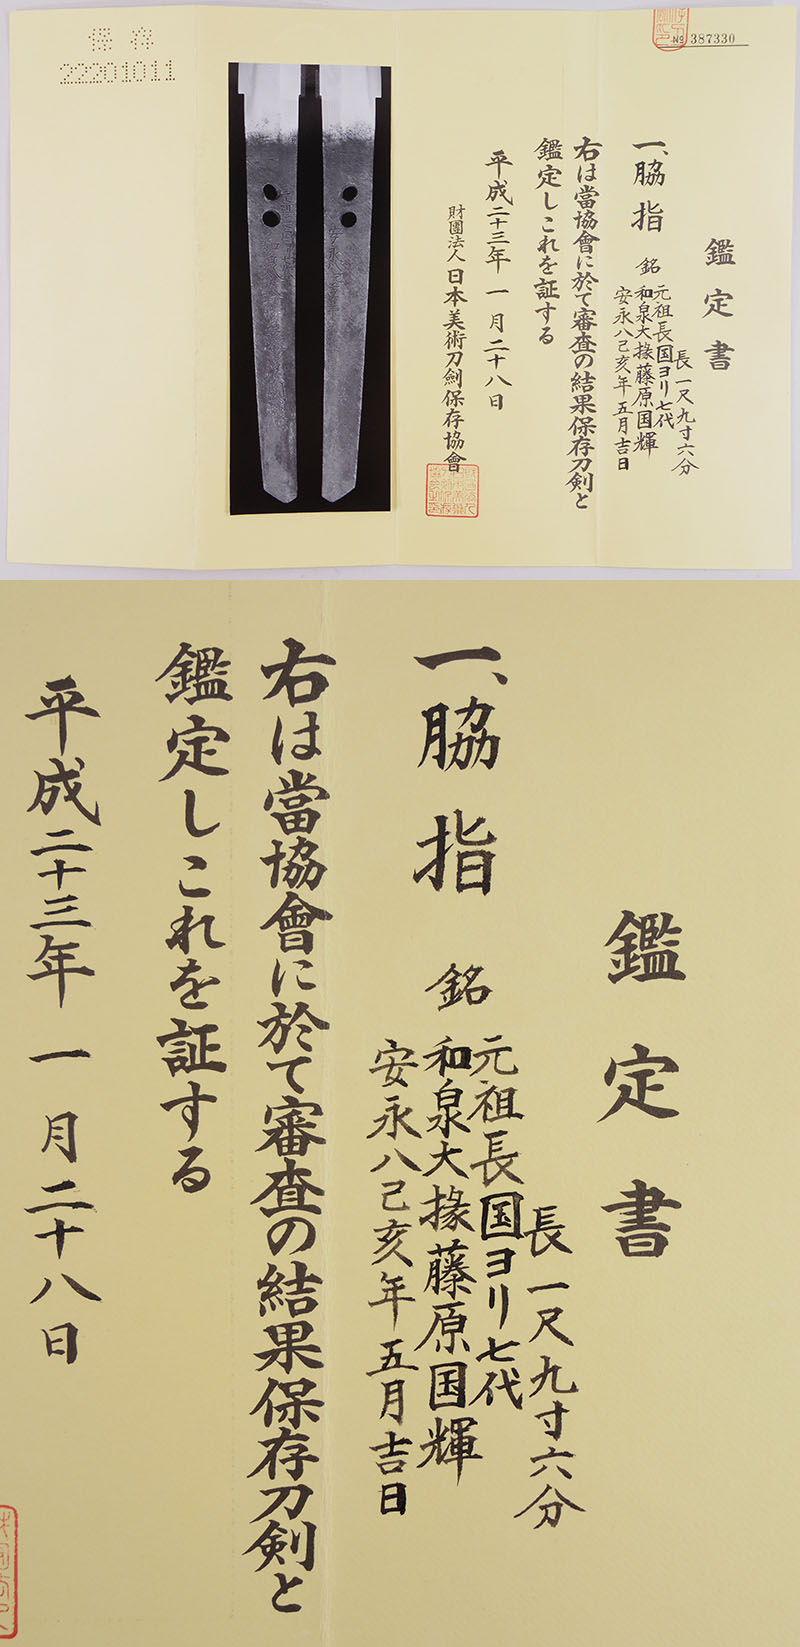 保存
22201011
№ 387330
鑑定書
長一尺九寸六分
一、脇指 銘
元祖長国ヨリ七代
和泉大掾藤原国輝
安永八己亥年五月吉日
右は當協會に於て審査の結果保存刀剣と
鑑定しこれを証する
平成二十三年一月二十八日
財團法人 日本美術刀劍保存協會
鑑定書
長一尺九寸六分
一、脇指 銘
元祖長国ヨリ七代
和泉大掾藤原国輝
安永八己亥年五月吉日
右は當協會に於て審査の結果保存刀剣と
鑑定しこれを証する
平成二十三年一月二十八日